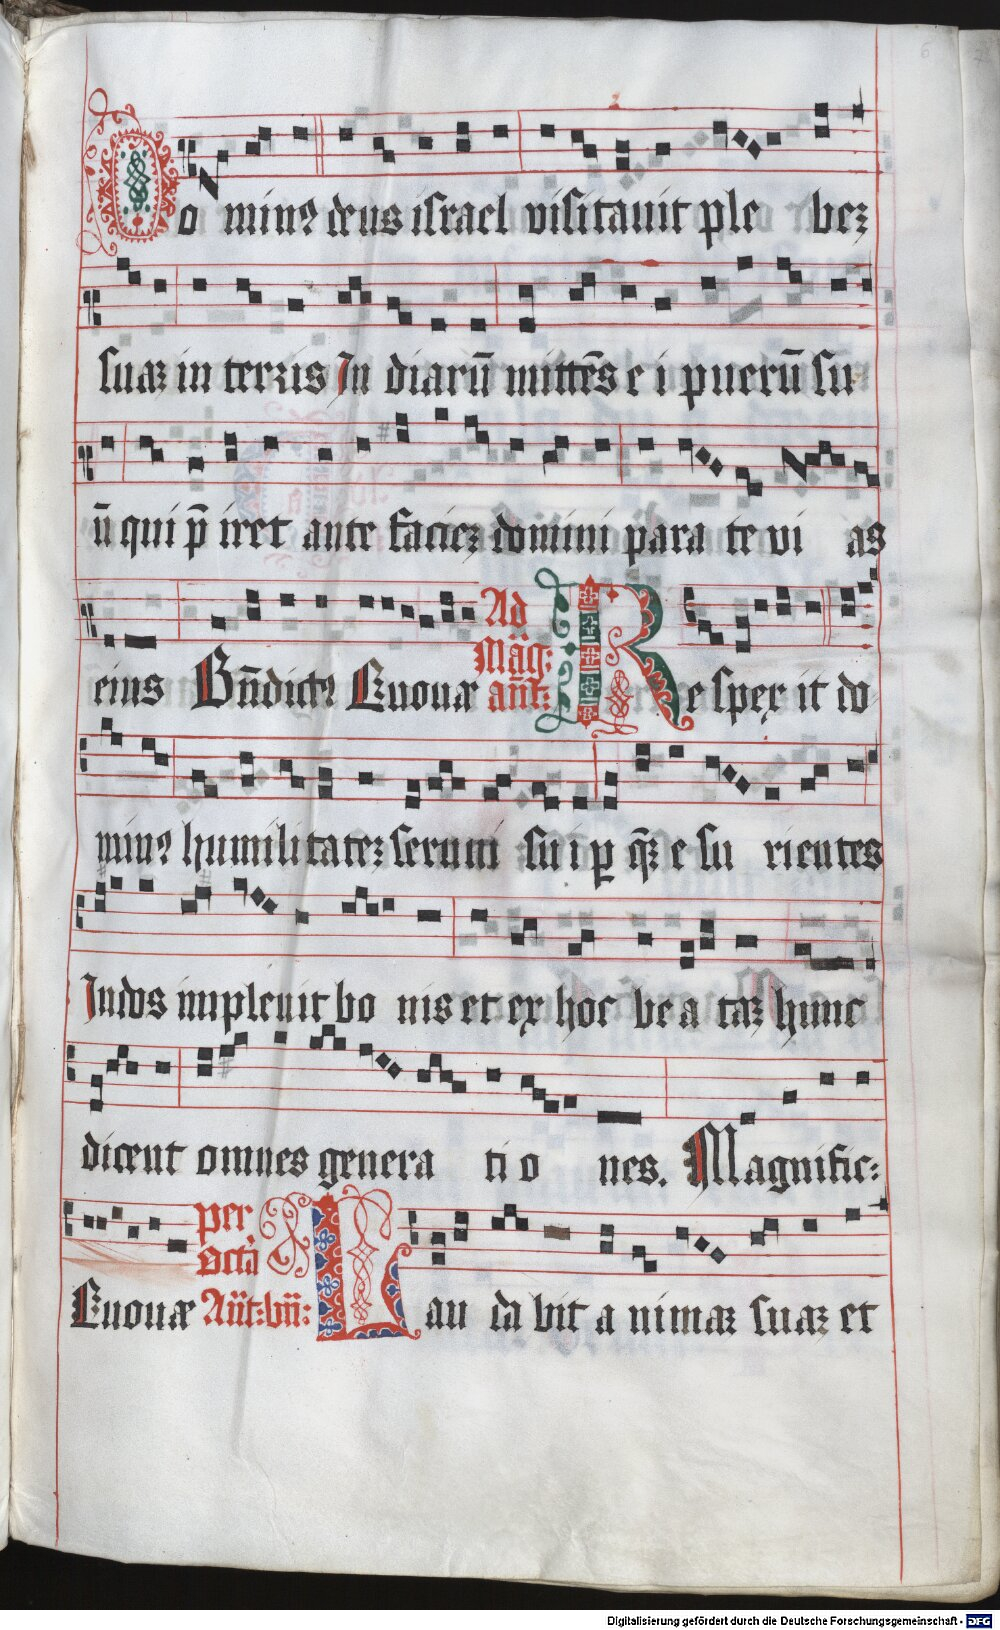 6
7
Do min⁹ deus israel visitauit ple beʒ
suaʒ in terris In diarū mittēs e i puerū su
ū qui p̄ iret ante facieʒ domini para te vi as
eius Bn̄dict⁹ Euouae
Ad Mag: ant:
Resperit do
min⁹ humilitateʒ serui sui p qʒ e su rientes
Iudos impleuit bo nis et ex hoc be a taʒ hunc
dicent omnes genera ti o nes. Magnific:
Euouae
per octā Ant: bn̄:
Lau da vit a nimaʒ suaʒ et
Digitalisierung gefördert durch die Deutsche Forschungsgemeinschaft - DFG